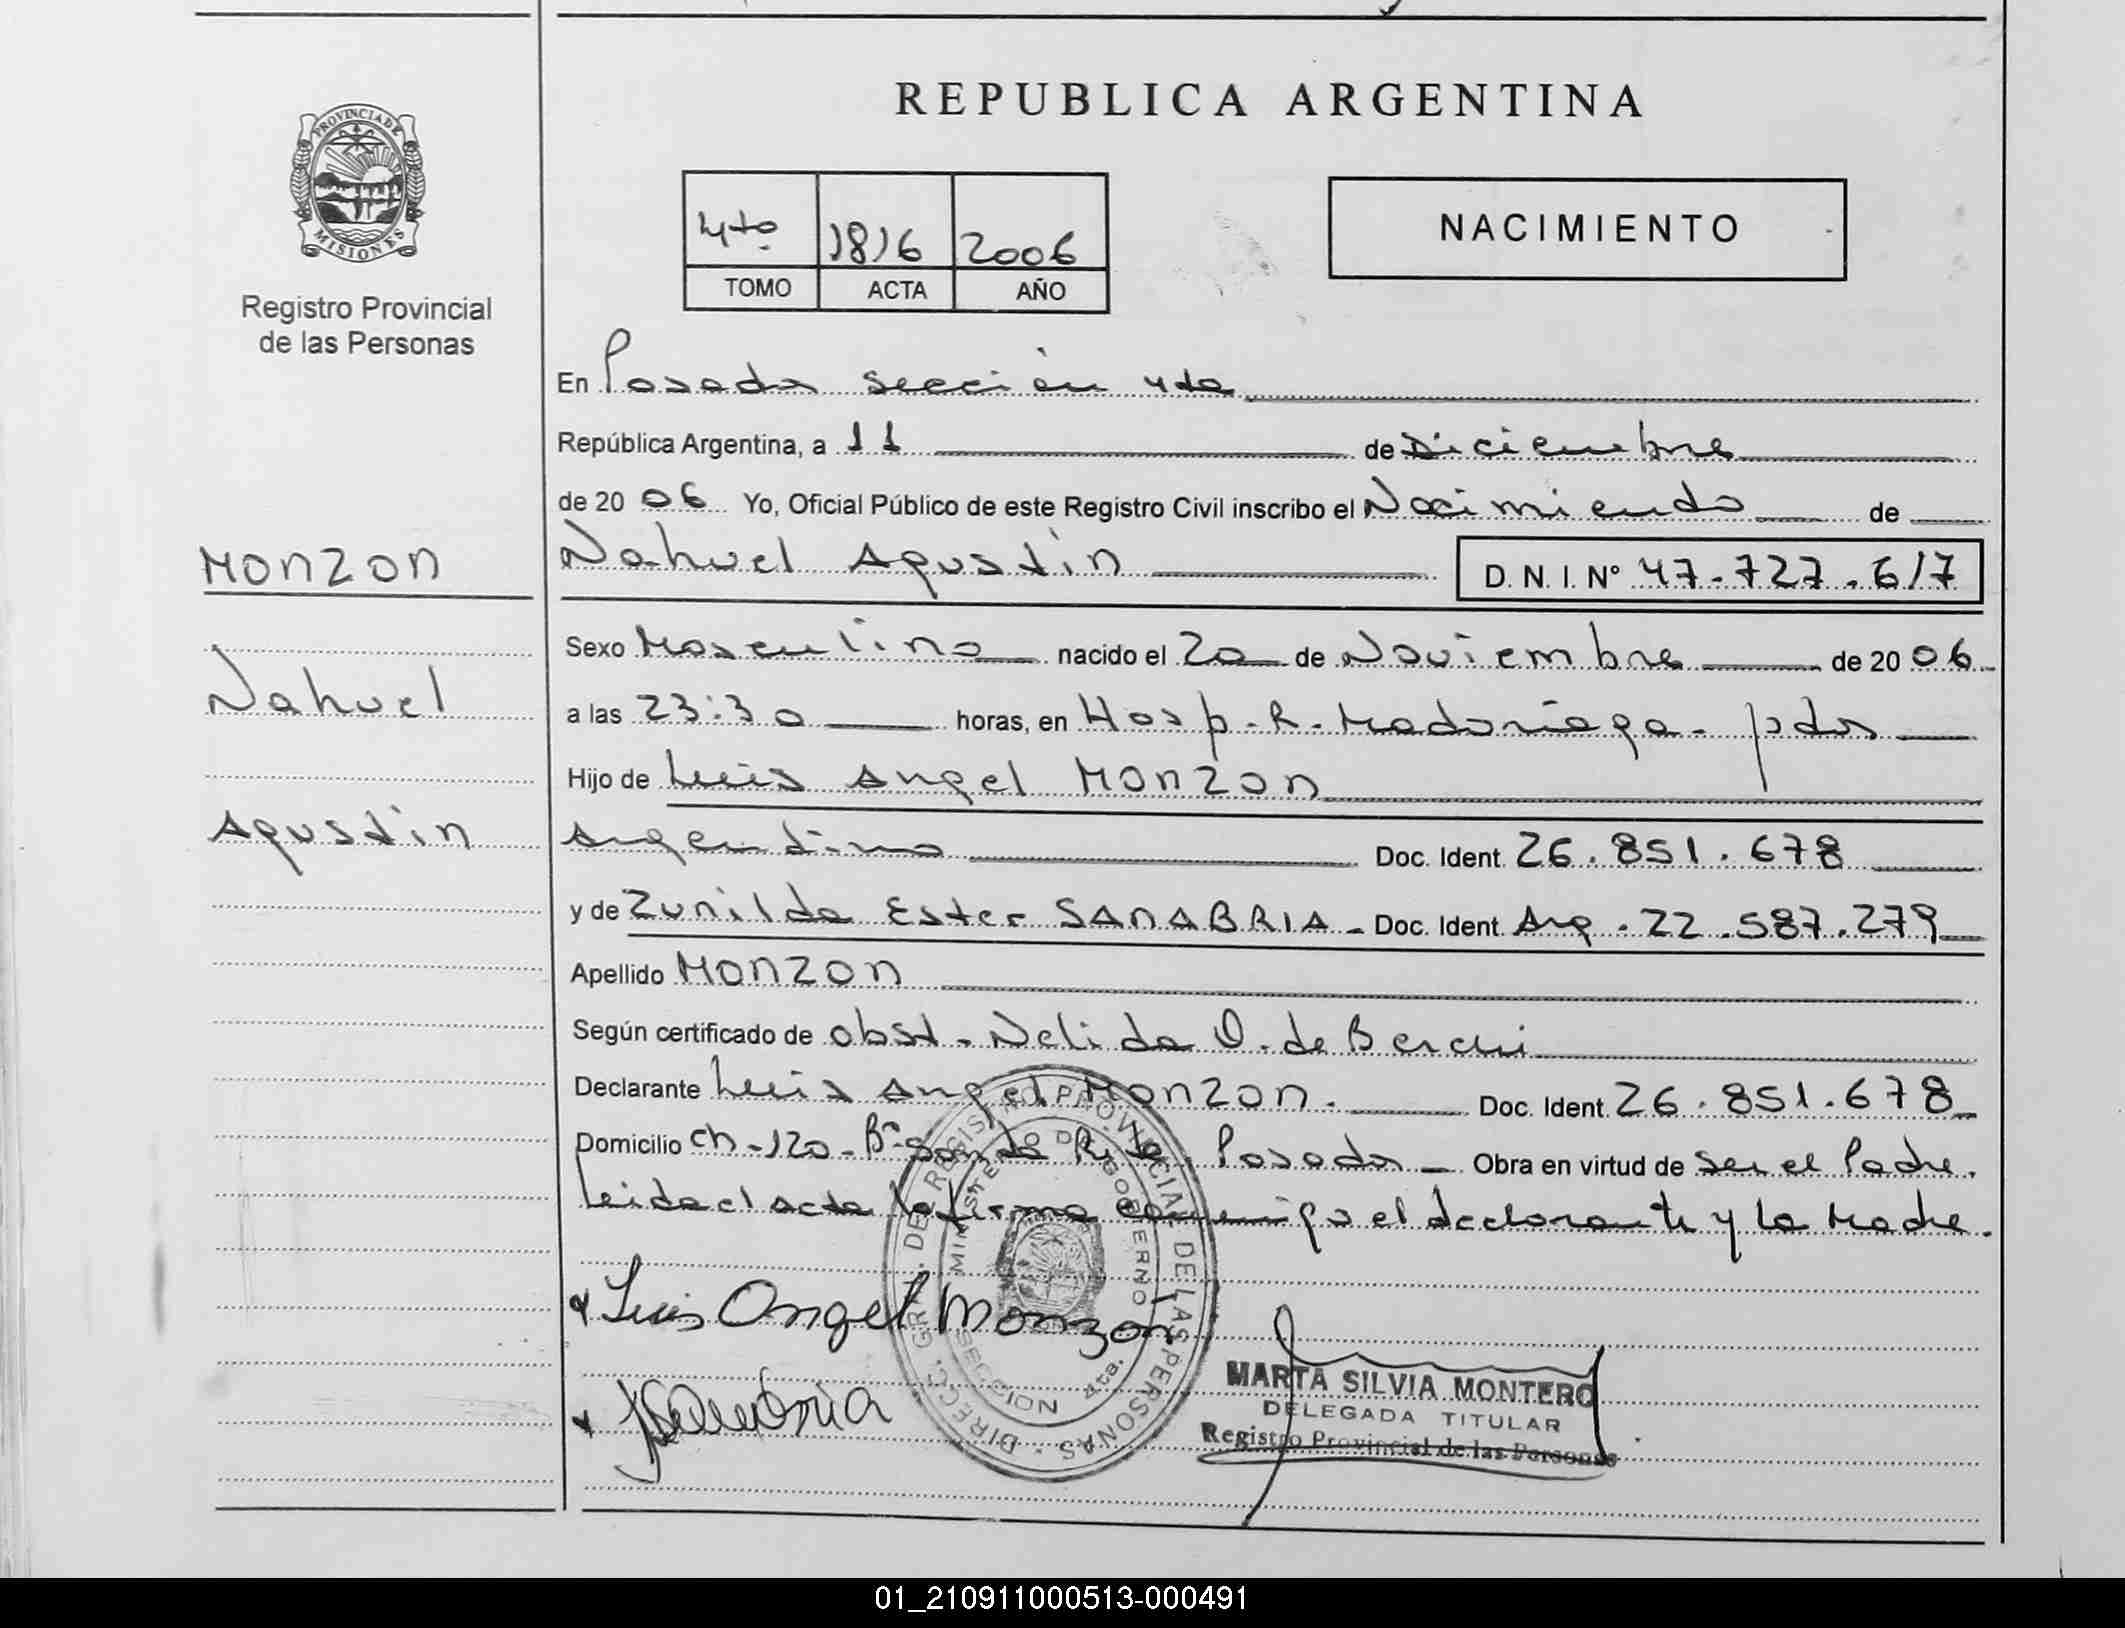 PROVINCIA DE
MISIONES
Registro Provincial
de las Personas
REPUBLICA ARGENTINA
4to 1816 2006
TOMO ACTA AÑO
NACIMIENTO
En Posadas sección 4ta
República Argentina, a 11 de Diciembre
de 2006 Yo, Oficial Público de este Registro Civil inscribo el Nacimiento de
MONZON
Nahuel Agustin D. N. I. Nº 47.727.617
Nahuel
Agustin
Sexo Masculino nacido el 20 de Noviembre de 2006
a las 23:30 horas, en Hosp. R. Madariaga. pdas
Hijo de Luis Angel MONZON
Argentino Doc. Ident. 26.851.678
y de Zunilda Ester SANABRIA - Doc. Ident. Arg. 22.587.279
Apellido MONZON
Según certificado de obst. Nelida O. de
Declarante Luis Angel MONZON. Doc. Ident. 26.851.678
Domicilio Ch-120- Bº Santa Rita. Posadas - Obra en virtud de ser el Padre.
Leida el acta la firma conmigo el declarante y la Madre.
Luis Angel Monzón
DIRECC. GRAL. DE REGISTRO PROVINCIAL DE LAS PERSONAS
MINISTERIO DE GOBIERNO
SECCION 4ta.
MARTA SILVIA MONTERO
DELEGADA TITULAR
Registro Provincial de las Personas
01_210911000513-000491